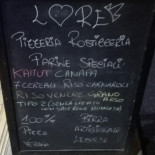 LORE
PIZZERIA ROSTICCERIA
FARINE SPECIALI
KAMUT CANAPA
7 CEREALI RISO CARNAROLI
RISO VENERE GRANO ARSO
TIPO 2 (SENZA LIEVITO
100% BIRRA
PIZZA ARTIGIANALE